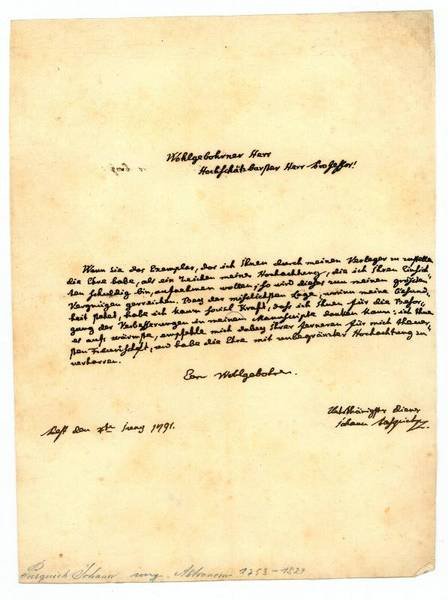 Wohlgebohrner Herr
Hochschätzbarster Herr Professor!
Wenn sie das Exemplar, das ich Ihnen durch meinen Verleger zu zustellen
die Ehre habe, als ein Zeichen meiner Hochachtung, die ich Ihren Einsich-
ten schuldig bin, aufnehmen wollen; so wird dieses zu meinen größten
Vergnügen gereichen. Bey der mißlichsten Lage, worinn meine Gesund-
heit stehet, habe ich kaum soviel Kraft, daß ich Ihnen für die Besor-
gung der Verbesserungen in meinem Manuscripte danken kann; ich thue
es aufs wärmste, empfehle mich dabey Ihrer ferneren für mich theuer-
sten Freundschaft, und habe die Ehre mit unbegränzter Hochachtung zu
verharren.
Euer Wohlgebohren.
Unterthänigster Diener
Johann Pasquich
den 1791.
Pasquich Johann ung. Astronom 1753-1829